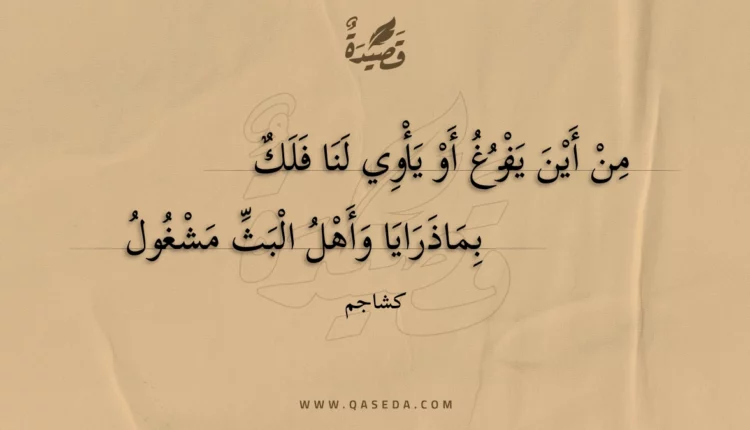 قَصِيدَةٌ
مِنْ أَيْنَ يَفْرُغُ أَوْ يَأْوِي لَنَا فَلَكٌ
بِمَاذَرَايَا وَأَهْلُ الْبَثِّ مَشْغُولُ
كشاجم
WWW.QASEDA.COM